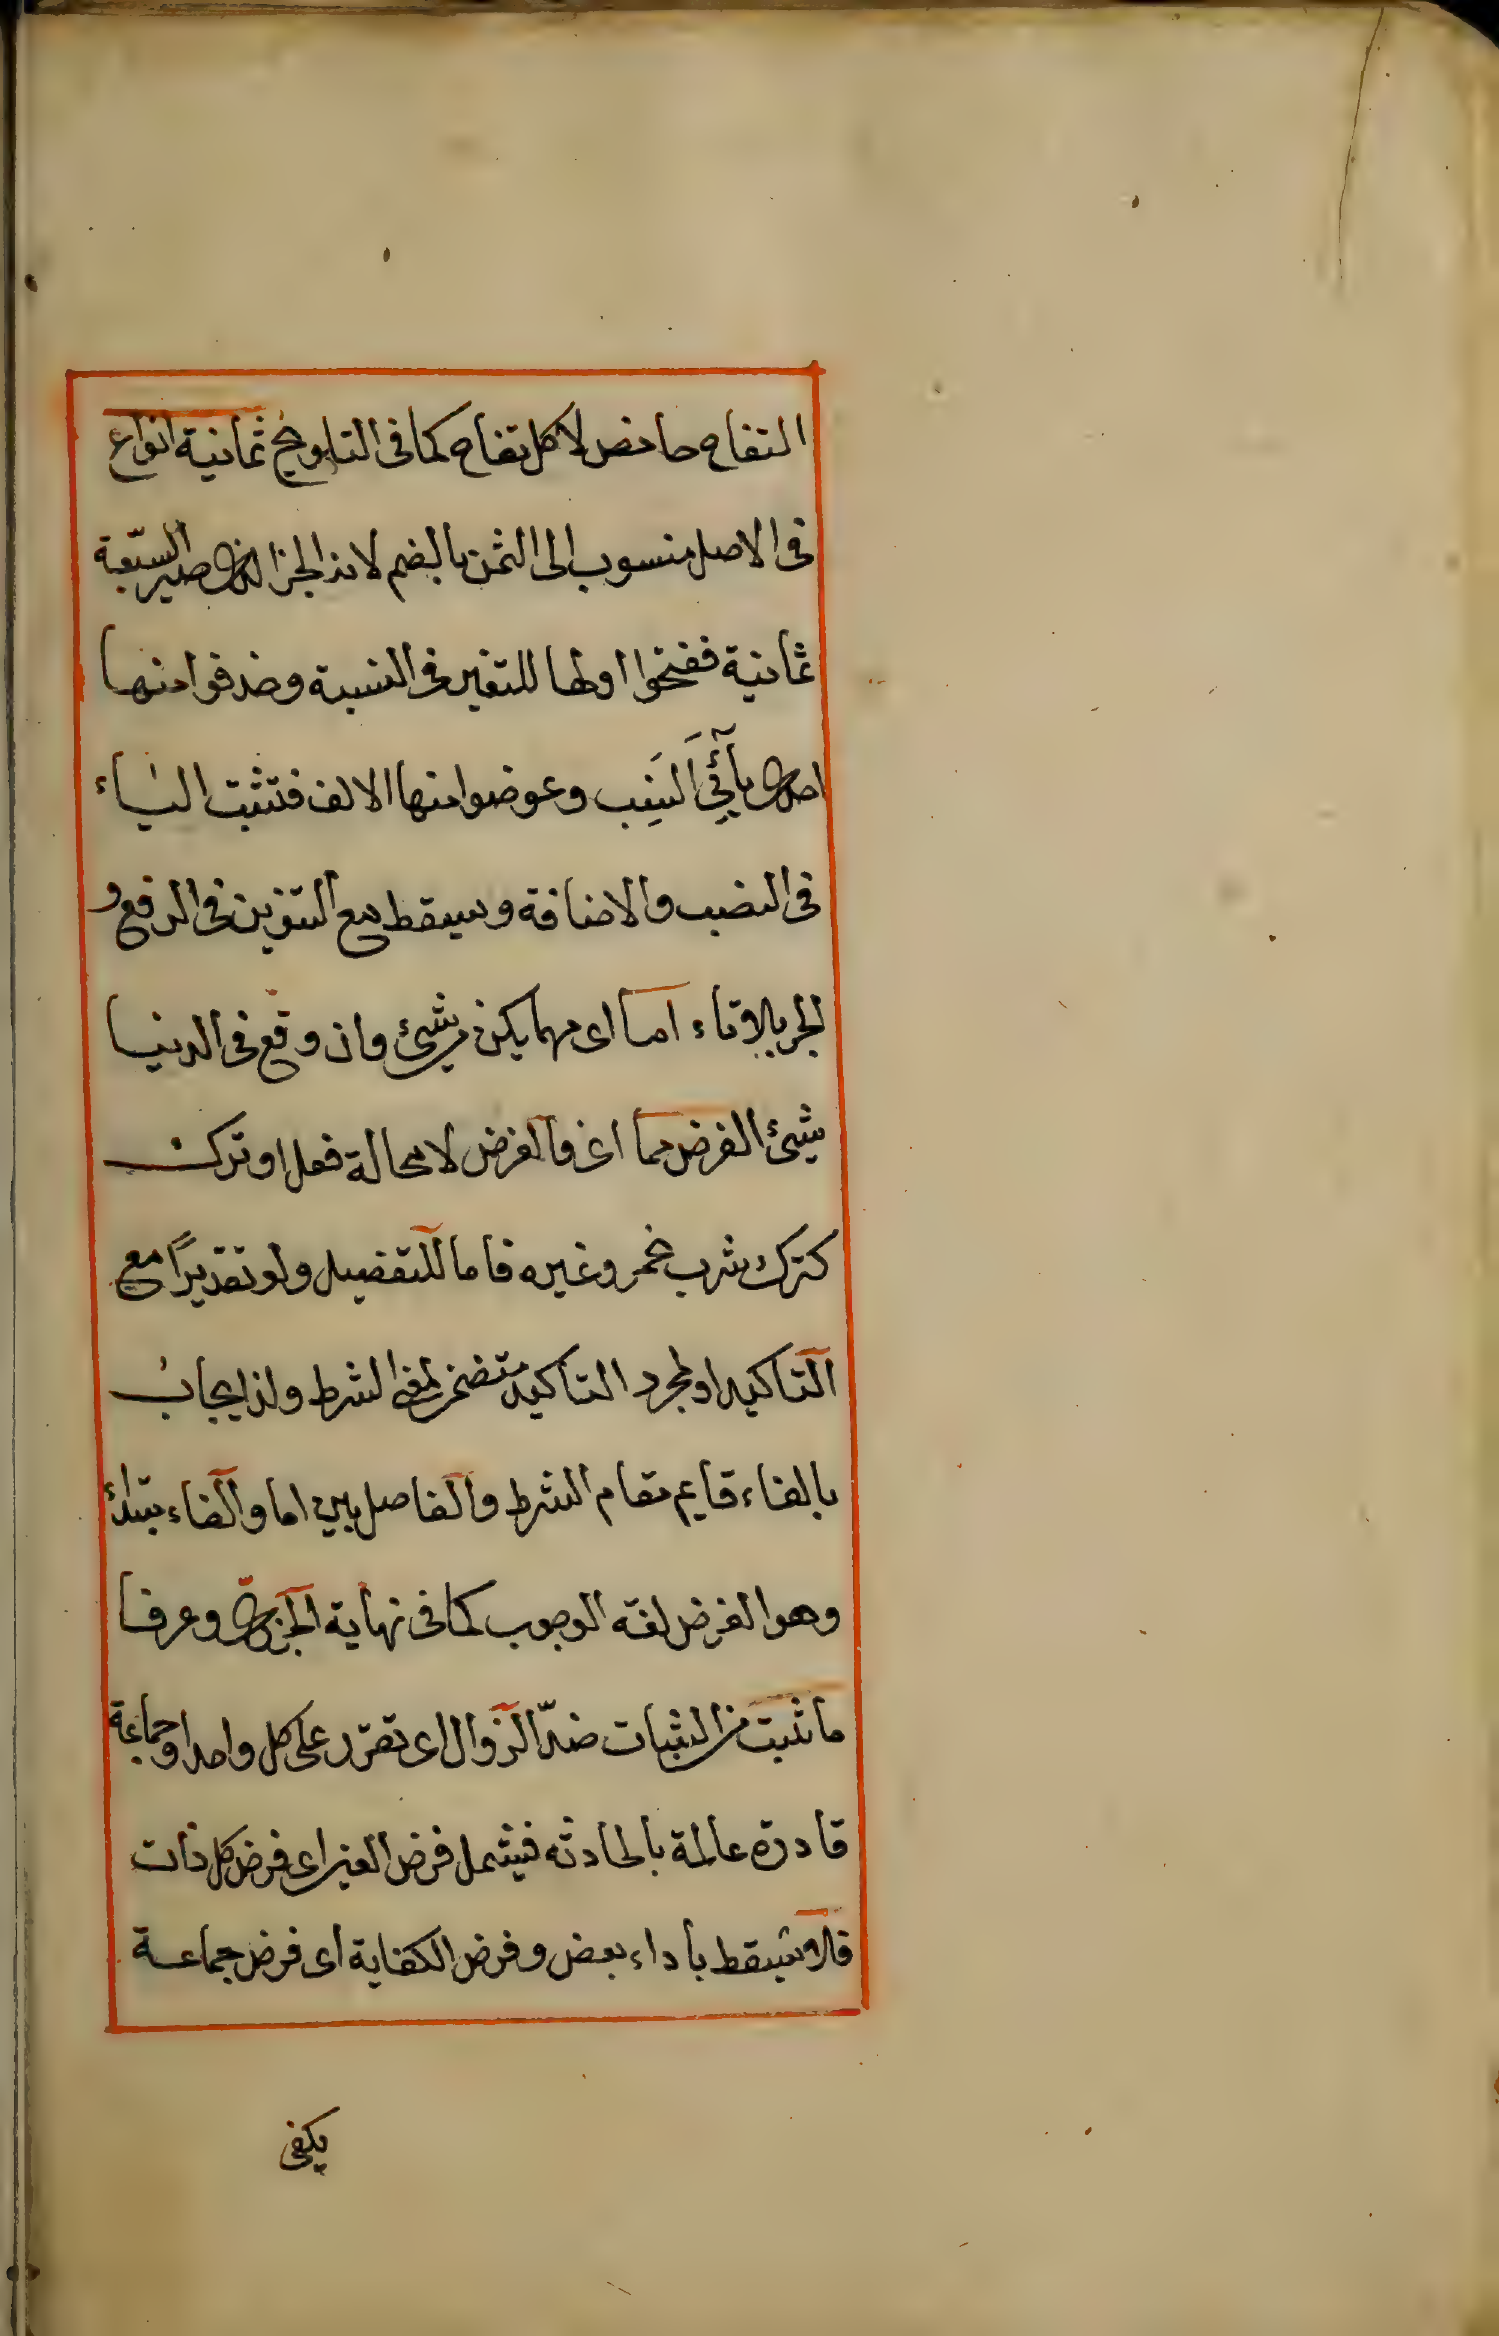 التفاح حامض لا كل تفاح كما فى التلويح ثمانية انواع
فى الاصل منسوب الى الثمن بالضم لانه الجزا الذى صير السبعة
ثمانية ففتحوا اولها للتغير فى النسبة وحذفوا منها
احدى يآئَي النسب وعوضوا منها الالف فتثبت الياء
فى النصب والاضافة ويسقط مع التنوين فى الرفع و
الجر بالاتاء اما اى مهما يكن من شيئ وان وقع فى الدنيا
شيئ الفرض مما اغ فالفرض لا محالة فعل او ترك
كترك شرب خمر وغيره فاما للتفصيل ولو تقديرًا مع
التاكيد او لمجرد التاكيد متضمن لمعنى الشرط ولذا يجاب
بالفاء قايم مقام الشرط والفاصل بين اما والفاء مبتدائ
وهو الفرض لغة الوجوب كما فى نهاية الجزرى وعرفا
ما ثبت من الثبات ضدّ الزوال اى تقرّر على كل واحد او جماعة
قادرة عالمة بالحادثه فيشمل فرض العين اى فرض كل ذات
فلا يسقط بأداء بعض وفرض الكفاية اى فرض جماعة
يكفى